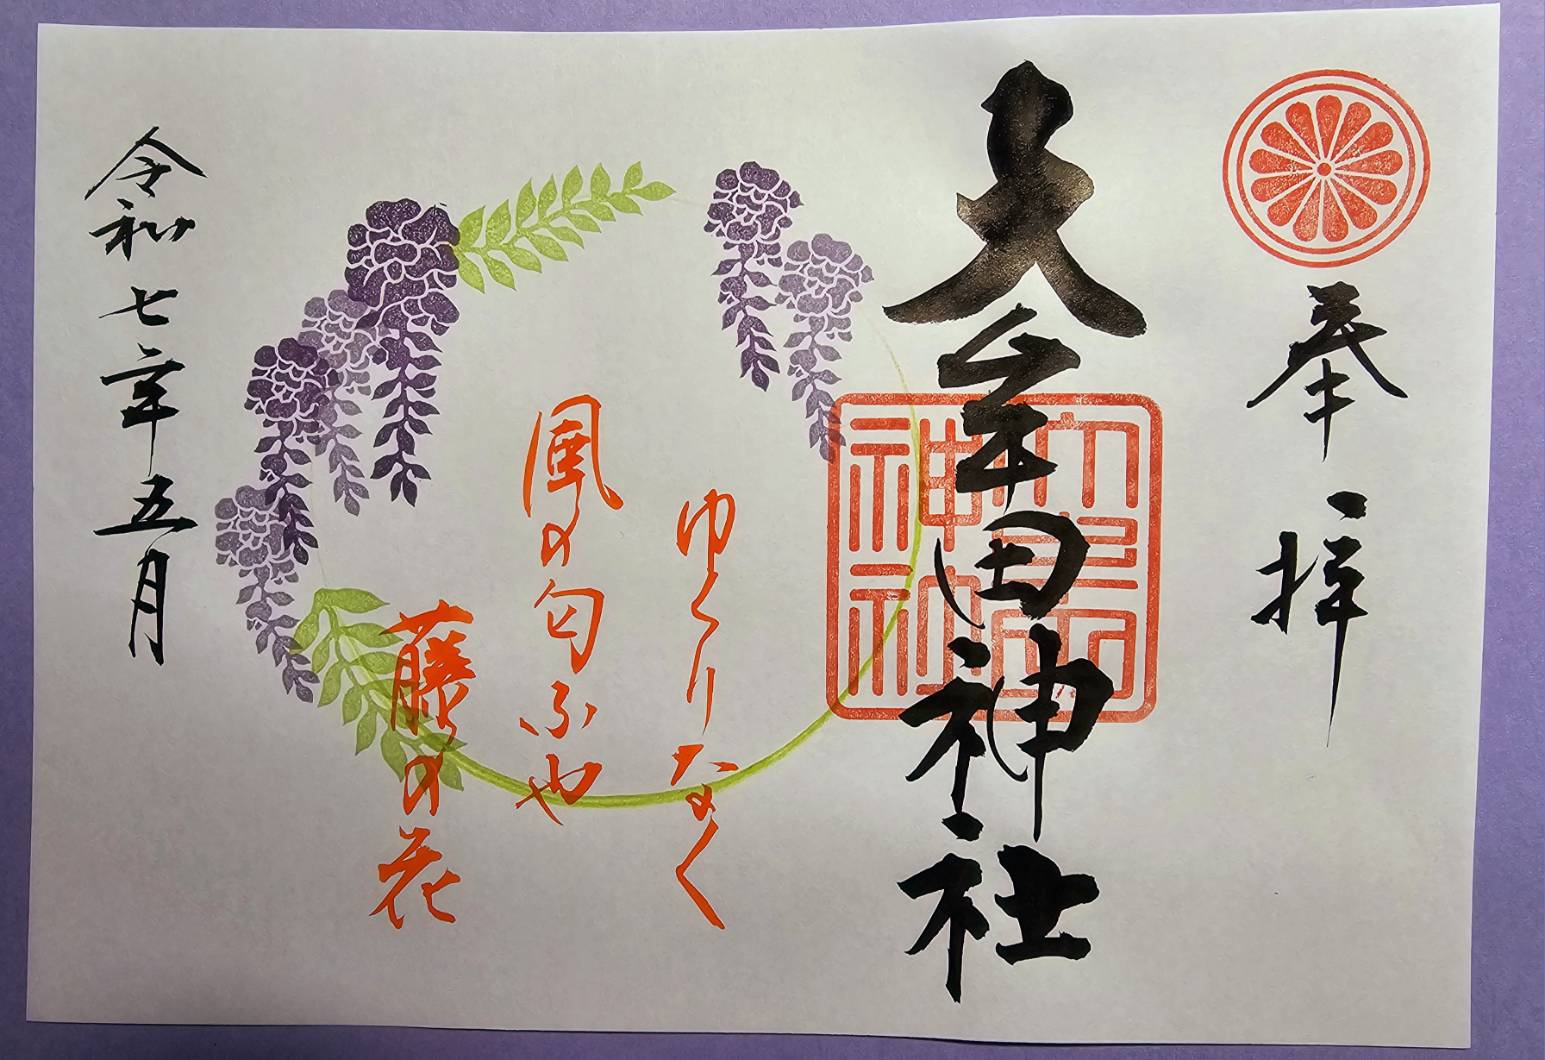 奉拝
大牟田神社
大牟田神社
ゆくりなく
風の匂ふや
藤の花
令和七年五月